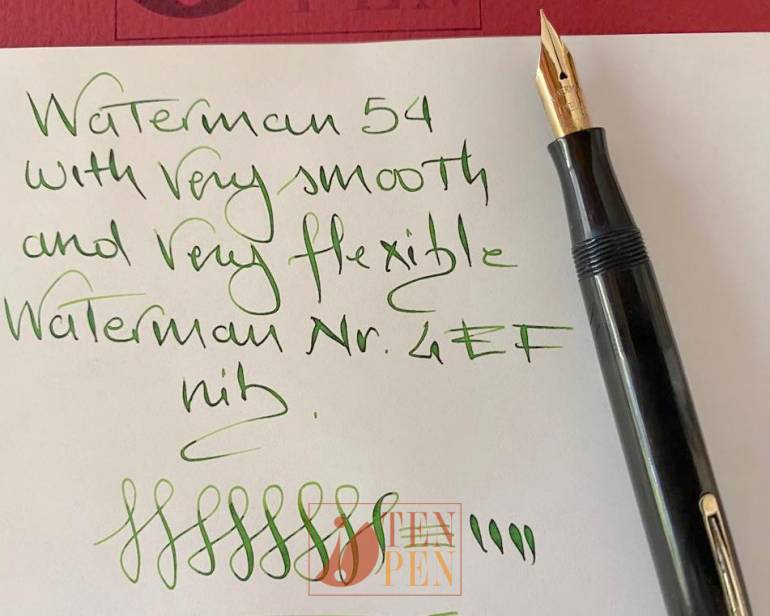 PEN
Waterman 54
with very smooth
and very flexible
Waterman Nr. 4 EF
nib.
TEN
PEN